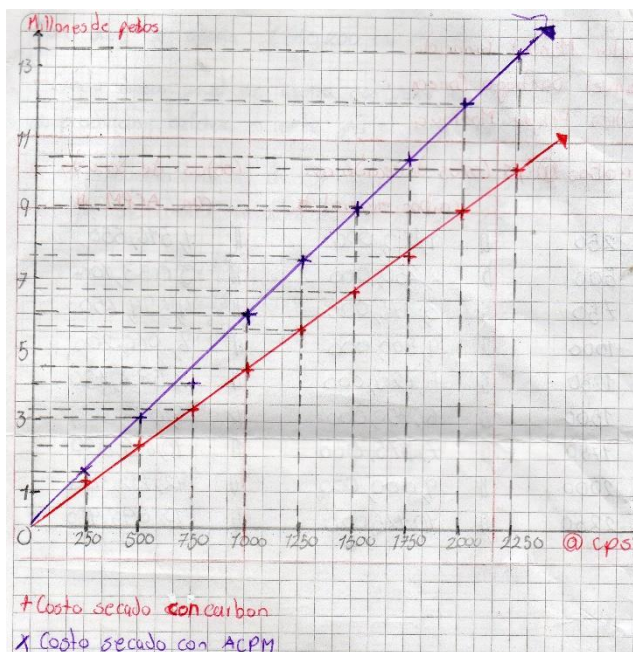 Millones de pesos
13
11
9
7
5
3
1
0 250 500 750 1000 1250 1500 1750 2000 2250 @ cps
+ Costo secado con carbon
x Costo secado con ACPM